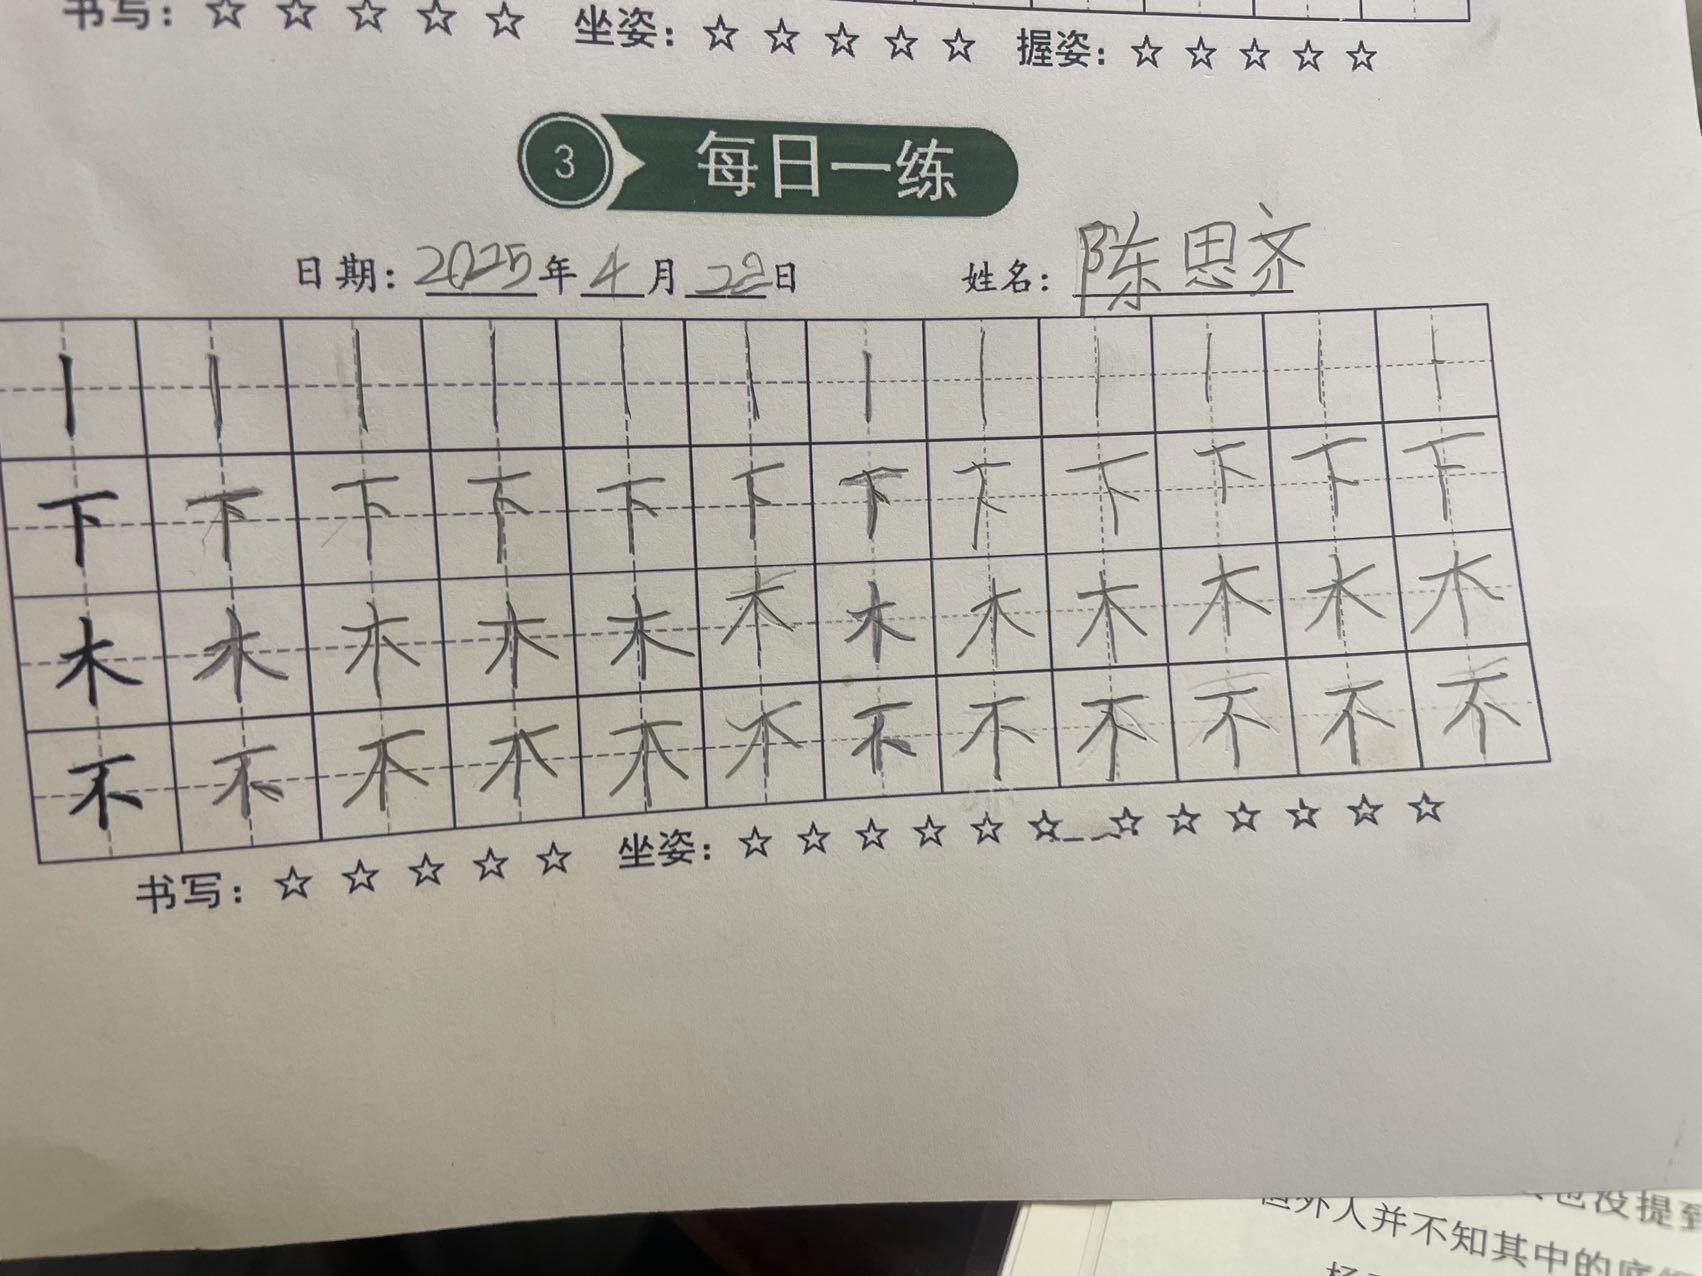 书写：☆ ☆ ☆ ☆ ☆ 坐姿：☆ ☆ ☆ ☆ ☆ 握姿：☆ ☆ ☆ ☆ ☆
3 每日一练
日期：2025年4月22日 姓名：陈思齐
丨 丨 丨 丨 丨 丨 丨 丨 丨 丨 丨 丨
下 下 下 下 下 下 下 下 下 下 下 下
木 木 木 木 木 木 木 木 木 木 木 木
不 不 不 不 不 不 不 不 不 不 不 不
书写：☆ ☆ ☆ ☆ ☆ 坐姿：☆ ☆ ☆ ☆ ☆ ☆ ☆ ☆ ☆ ☆ ☆ ☆
也没提到
但外人并不知其中的底细